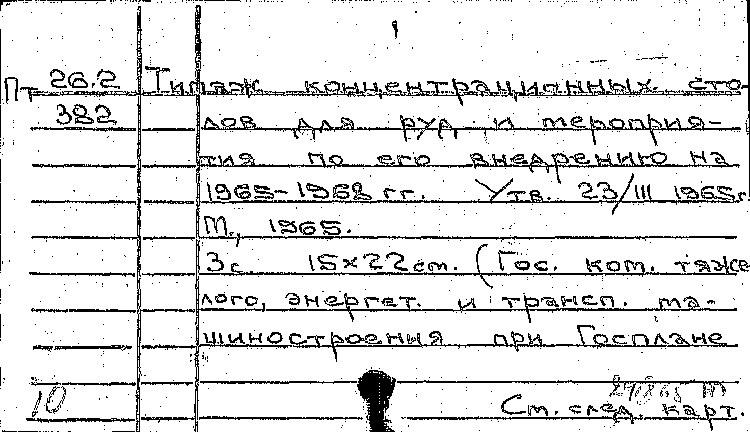 1
Пт 26.2 Типаж концентрационных сто-
382 лов для руд и мероприя-
тия по его внедрению на
1965-1968 гг. Утв. 23/III 1965г.
М., 1965.
3с. 15×22см. (Гос. ком. тяже
лого, энергет. и трансп. ма-
шиностроения при Госплане
10
См. след. карт.